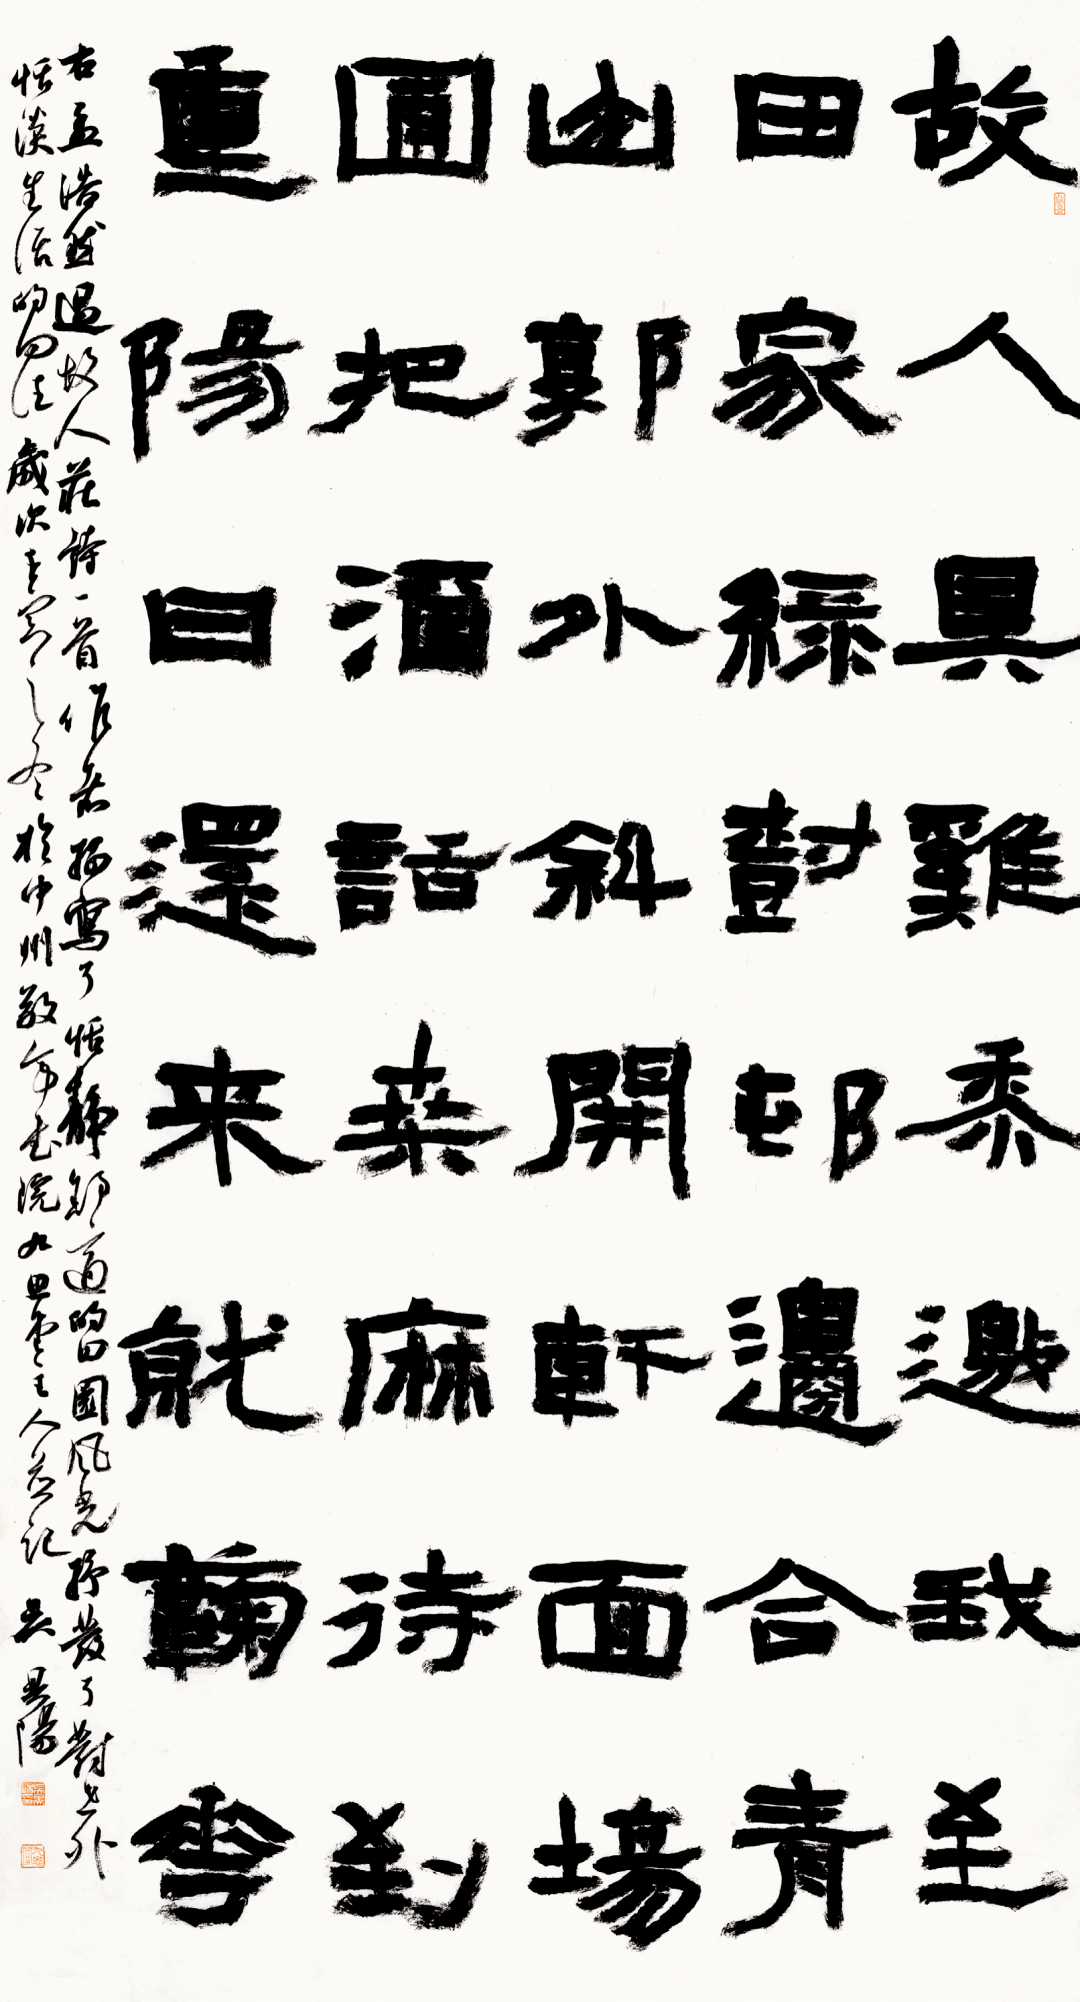 故人具雞黍邀我至
田家綠尌邨邊合青
山郭外斜開軒面場
圃把酒話桑麻待到
重陽日還来就鞠華
右孟浩然過故人莊詩一首作者描寫了恬靜舒適的田園风光抒發了對世外
恬淡生活的向往歲次之冬於中州書院主人並記